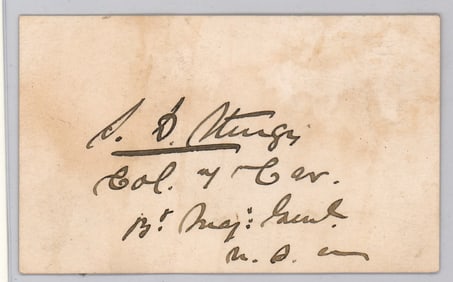 S. D. Sturgis
Col. 7 Cav.
Bt Maj: Genl.
U. S. A